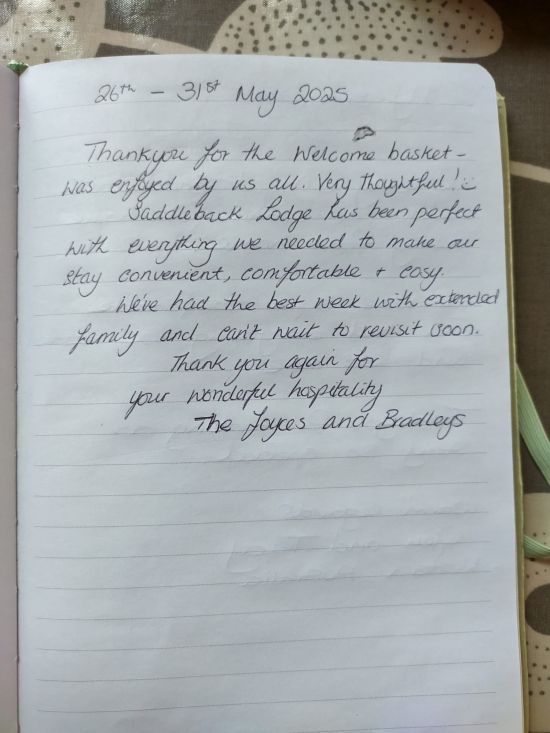 26th - 31st May 2025
Thankyou for the Welcome basket -
was enjoyed by us all. Very Thoughtful! :)
Saddleback Lodge has been perfect
with everything we needed to make our
stay convenient, comfortable + cosy.
We've had the best week with extended
family and can't wait to revisit soon.
Thank you again for
your wonderful hospitality
The Joyces and Bradleys